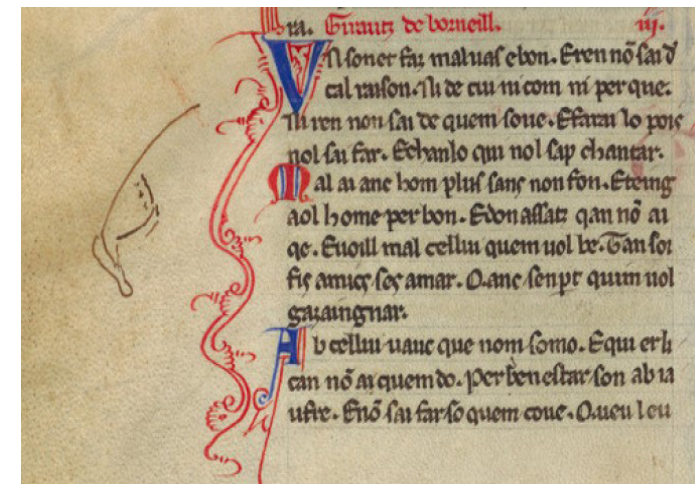 ra. Girautz de borneill. iij.
Un soner faz maluas e bon. E ren nō sai d'
cal raison. Ni de cui ni com ni per que.
Ni ren non sai de quem soue. E farai lo pois
nol sai far. E chanlo qui nol sap chantar.
Mal ai anc hom plus sans non fon. E teing
aol home per bon. E don assatz qan nō ai
qe. E uoill mal celliu quem uol be. Tan soi
fis amics ses amar. Q. anc sen pt quim uol
gazaingnar.
Ab celliu uauc que nom somo. E qui er li
can nō ai quem do. Per benestar son ab ia
ufre. E nō sai far so quem coue. Q. ueu leu